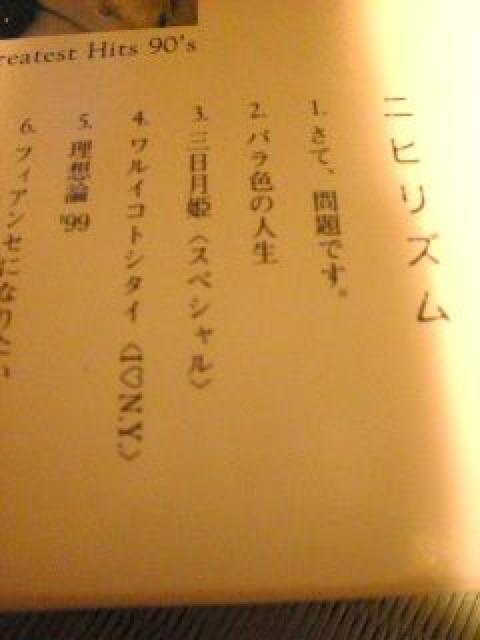 reatest Hits 90's
ニヒリズム
1. さて、問題です。
2. バラ色の人生
3. 三日月姫〈スペシャル〉
4. ワルイコトシタイ〈I♡N.Y.〉
5. 理想論'99
6. フィアンセになりたい